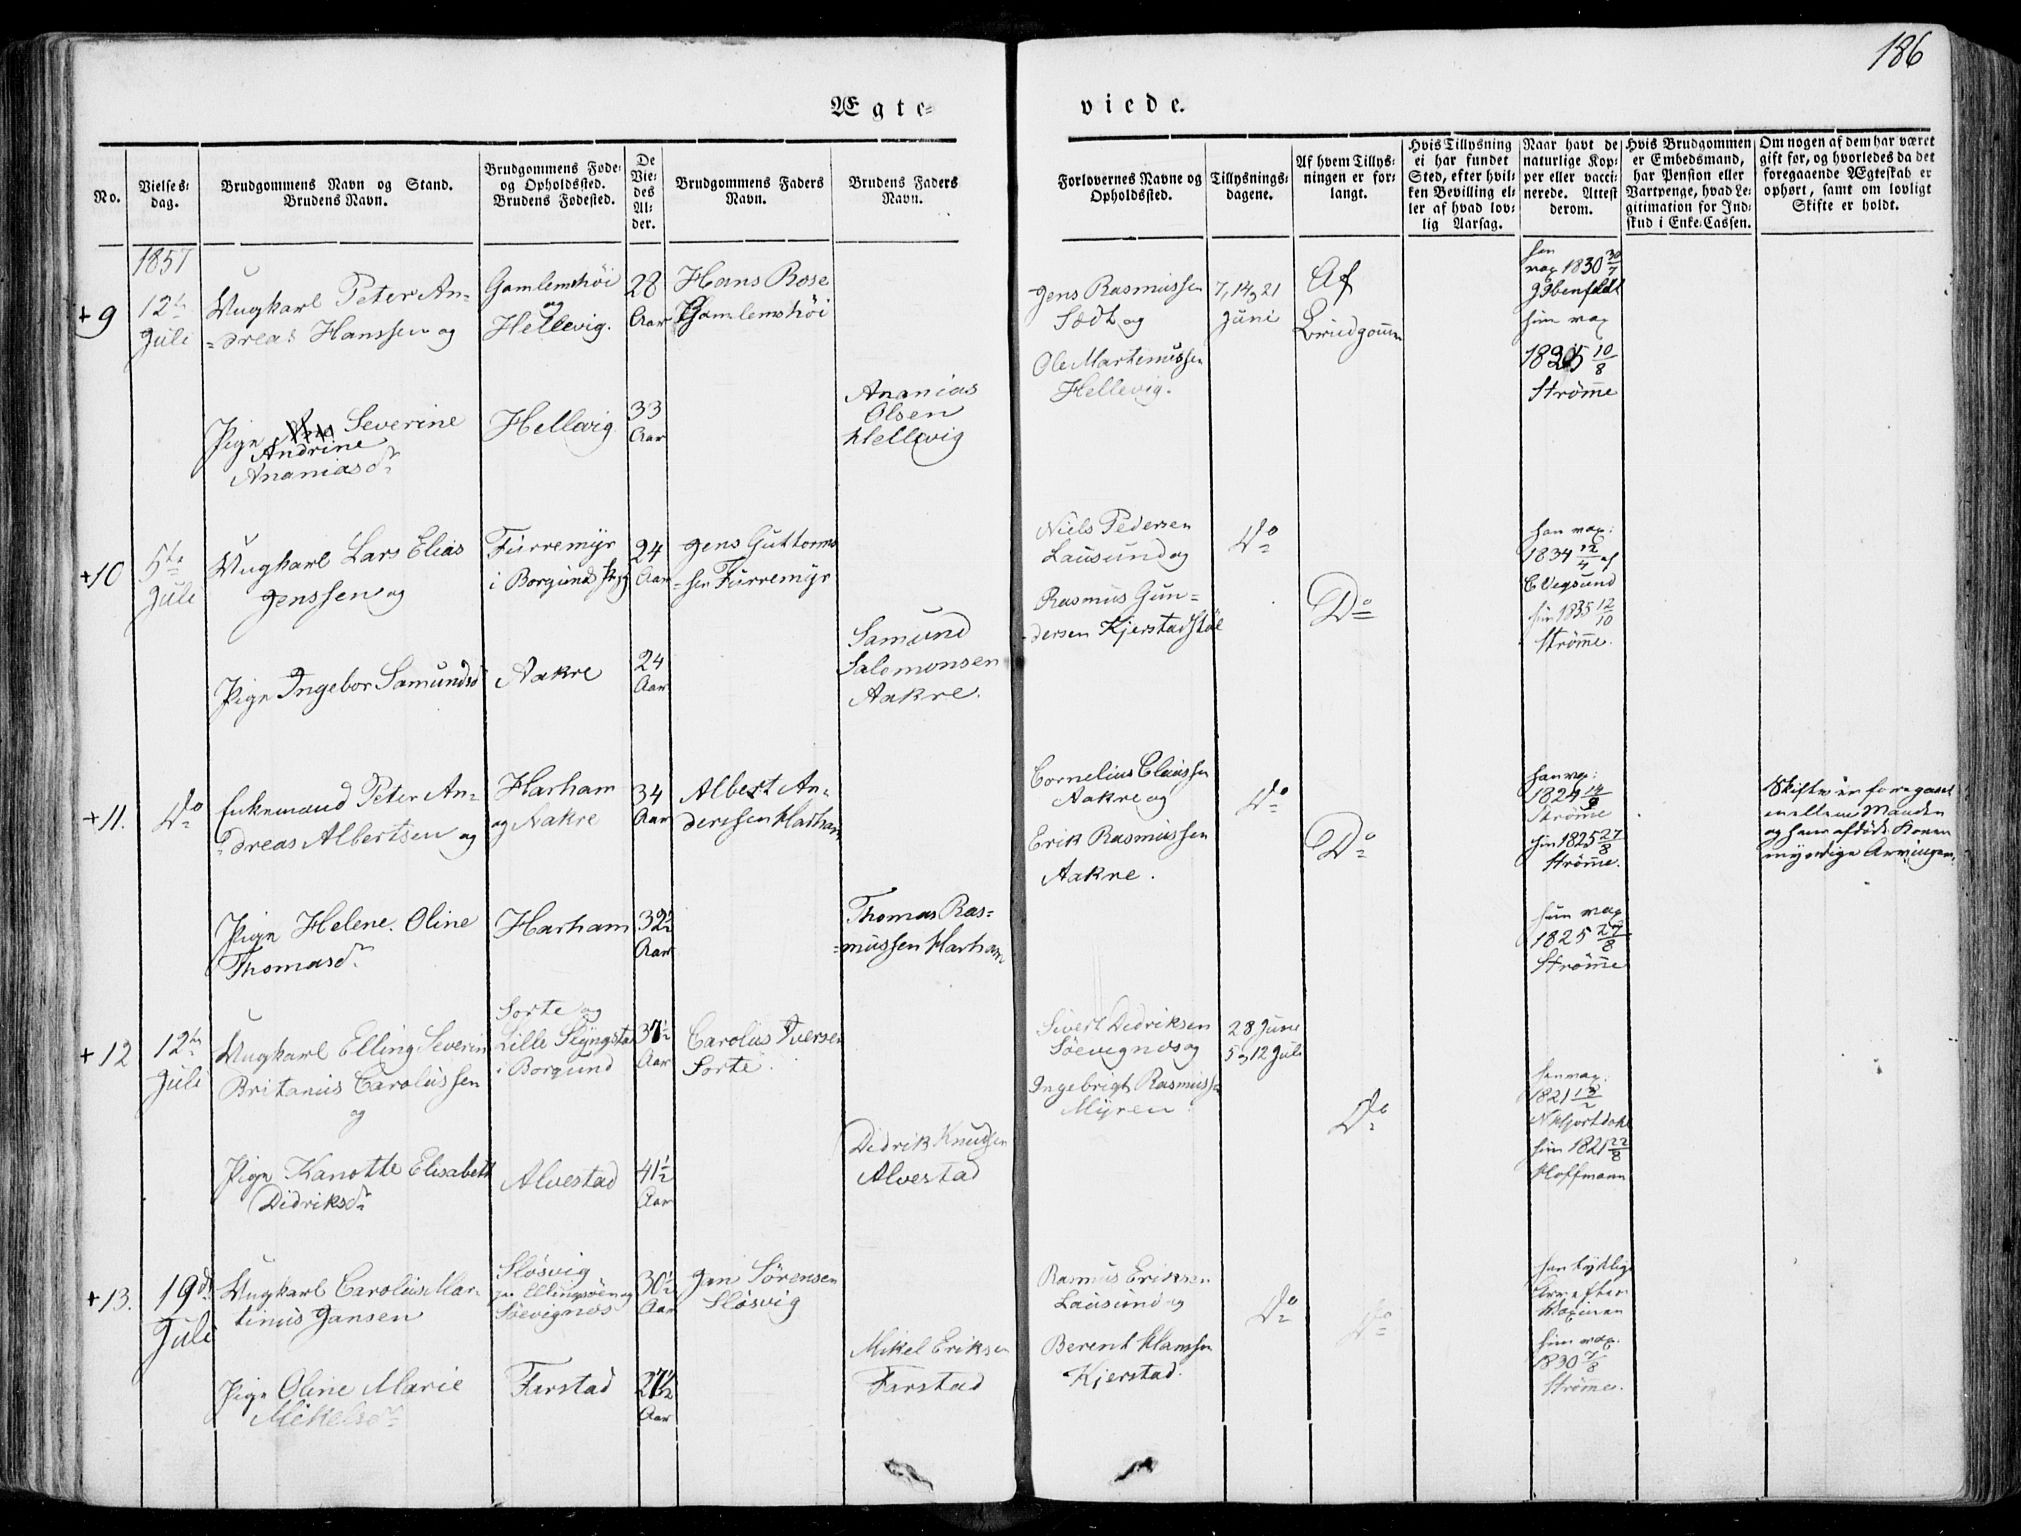 186
Ægte=
viede.
No.
Vielses-
dag.
Brudgommens Navn og Stand.
Brudens Navn.
Brudgommens Føde-
og Opholdssted.
Brudens Fødested.
De
Vie-
des
Al-
der.
Brudgommens Faders
Navn.
Brudens Faders
Navn.
Forlovernes Navne og
Opholdssted.
Tillysnings-
dagene.
Af hvem Tillys-
ningen er for-
langt.
Hvis Tillysning
ei har fundet
Sted, efter hvil-
ken Bevilling el-
ler af hvad lov-
lig Aarsag.
Naar havt de
naturlige Kop-
per eller vacci-
nerede. Attest
derom.
Hvis Brudgommen
er Embedsmand,
har Pension eller
Vartpenge, hvad Le-
gitimation for Ind-
skud i Enke-Cassen.
Om nogen af dem har været
gift før, og hvorledes da det
foregaaende Ægteskab er
ophørt, samt om lovligt
Skifte er holdt.
1857
+9
12te
Juli
Ungkarl Peter An-
=dreas Hanssen og
Gamlemshöi
og
Hellevig.
28
Aar
Hans Rose
Gamlemshöi
Jens Rasmussen
og
Ole Martinussen
Hellevig.
7, 14 og 21
Juni
Af
Brudgom
han
vax 1830 30/7
hun vax
10/8
Strömme
Pige Severine
Andrine
Ananiasdr
Hellevig
33
Aar
Ananias
Olsen
Hellevig
+10
5te
Juli
Ungkarl Lars Elias
Jenssen og
Furremyr
i Borgund
24
Aar
Jens Guttorms
=sen Furremyr
Niels Pedersen
Lausund og
Rasmus Gun-
dersen Kjerstadstöl
Do
Do
han vax:
1834 12/4 af
E Vegsund
hun 1835 12/10
Strömme.
Pige Ingebor Samundsd
Aakre
24
Aar
Samund
Salomonsen
Aakre.
+11.
Do
Enkemand Peter An-
=dreas Albertsen og
Harham
og Aakre
34
Aar
Albert An-
derssen Harham
Cornelius Claussen
Aakre og
Erik Rasmussen
Aakre.
Do
Do
han vax:
1824 14/9
Strömme
hun 1825 27/8
Strömme.
Skifte er foregaaet
mellem Manden
og hans afdöde Kones
myndige Arvinger.
Pige Helene Oline
Thomasdr
Harham
32½
Aar
Thomas Ras-
=mussen Harham
hun vax
1825 27/8
Strömme
+12
12te
Juli
Ungkarl Elling Severin
Britanius Carolussen
og
Sorte og
Lille
i Borgund
37½
Aar
Carolus Iversen
Sorte.
Sivert Didriksen
Söevignes og
Ingebrigt Rasmuss=
Myren
28 Juni
5 og 12 Juli
Do
han vax:
1821
hun 1821 22/8
Hoffmann
Pige Kanotte Elisabeth
Didriksdr
Alvestad
41½
Aar
Didrik Knudsen
Alvestad
+13.
19de
Juli
Ungkarl Carolus Mar-
tinus Jansen
Slösvig
paa Ellingsöen og
Söevignes
30½
Aar
Jan Sörensen
Slösvig
Rasmus Eriksen
Lausund og
Berent Hanssen
Kjerstad.
Do
Do
han tydlige
Ar efter
Vaxinen
hun vax.
1830 7/8
Strömme.
Pige Oline Marie
Mikelsdr
Farstad
27½
Aar
Mikel Eriksen
Farstad